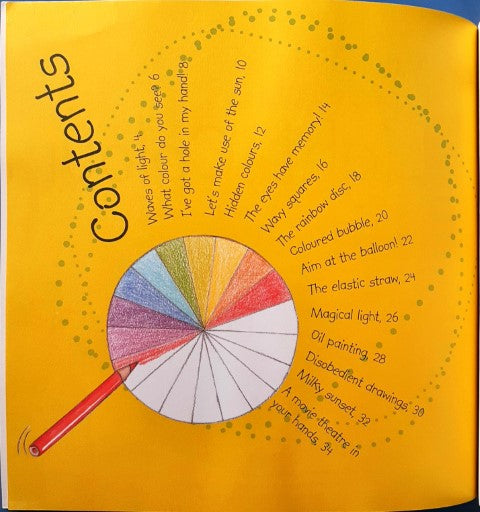 Contents
Waves of light, 4
What colour do you see? 6
I've got a hole in my hand! 8
Let's make use of the sun, 10
Hidden colours, 12
The eyes have memory! 14
Wavy squares, 16
The rainbow disc, 18
Coloured bubble, 20
Aim at the balloon! 22
The elastic straw, 24
Magical light, 26
Oil painting, 28
Disobedient drawings, 30
Milky sunset, 32
A movie theatre in
your hands, 34